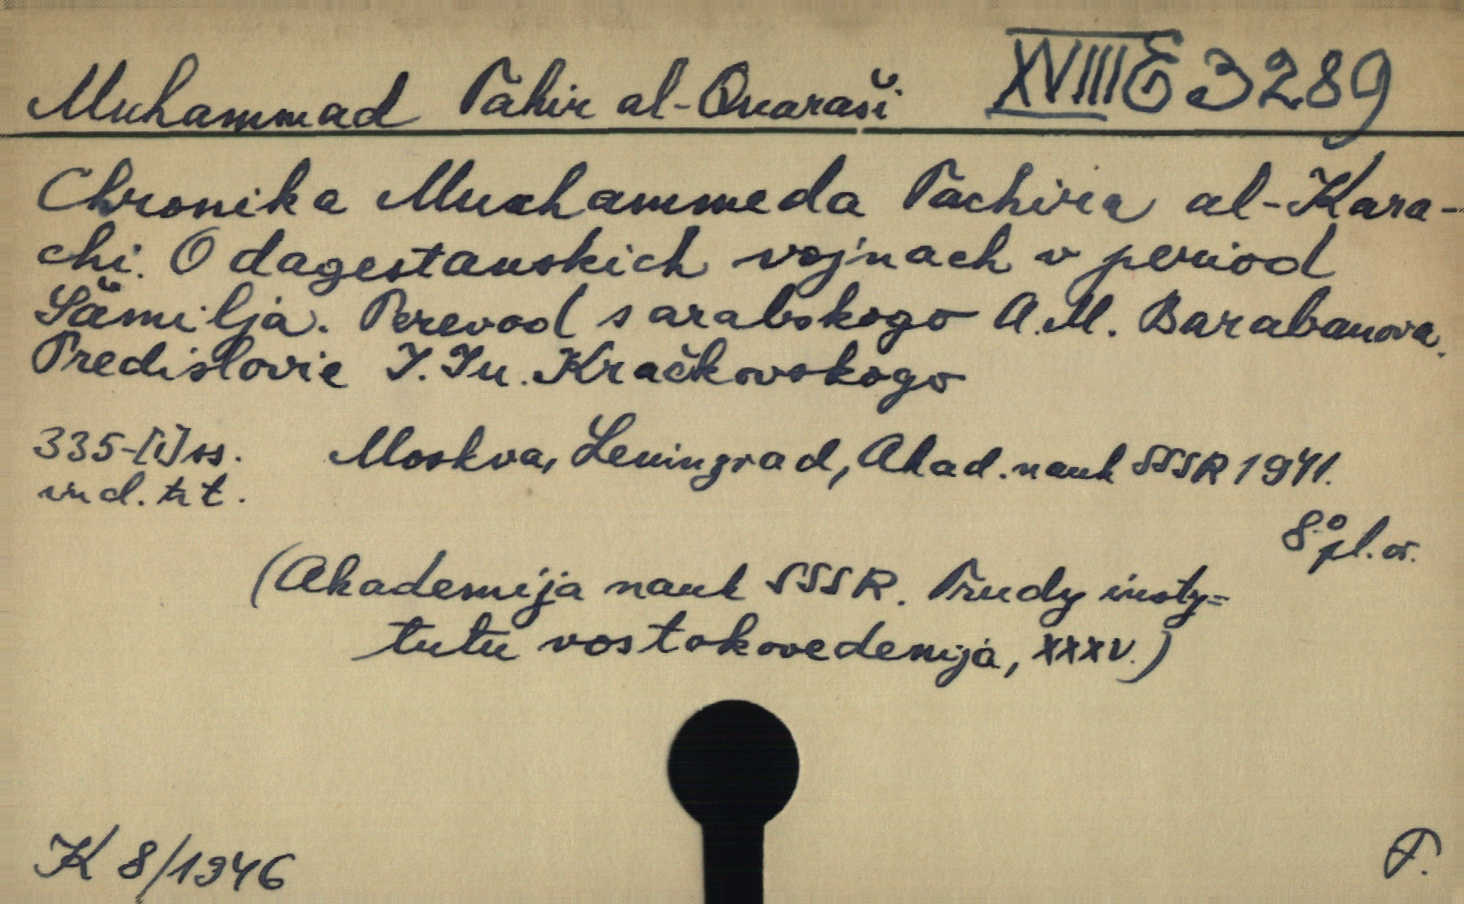 Muhammad Tāhir al-Quaraši XVIII E 3289
Chronika Muchammeda Tachira al-Kara-
chi. O dagestanskich vojnach v period
Šamilja. Perevod s arabskogo A.M. Barabanova.
Predislovie I. Ju. Kračkovskogo
335-[1] ss. Moskva, Leningrad, Akad. nauk SSSR 1941.
ind. tit. 8° pl. or.
(Akademija nauk SSSR. Trudy insty=
tutu vostokovedenija, XXXV.)
K 8/1946 T.